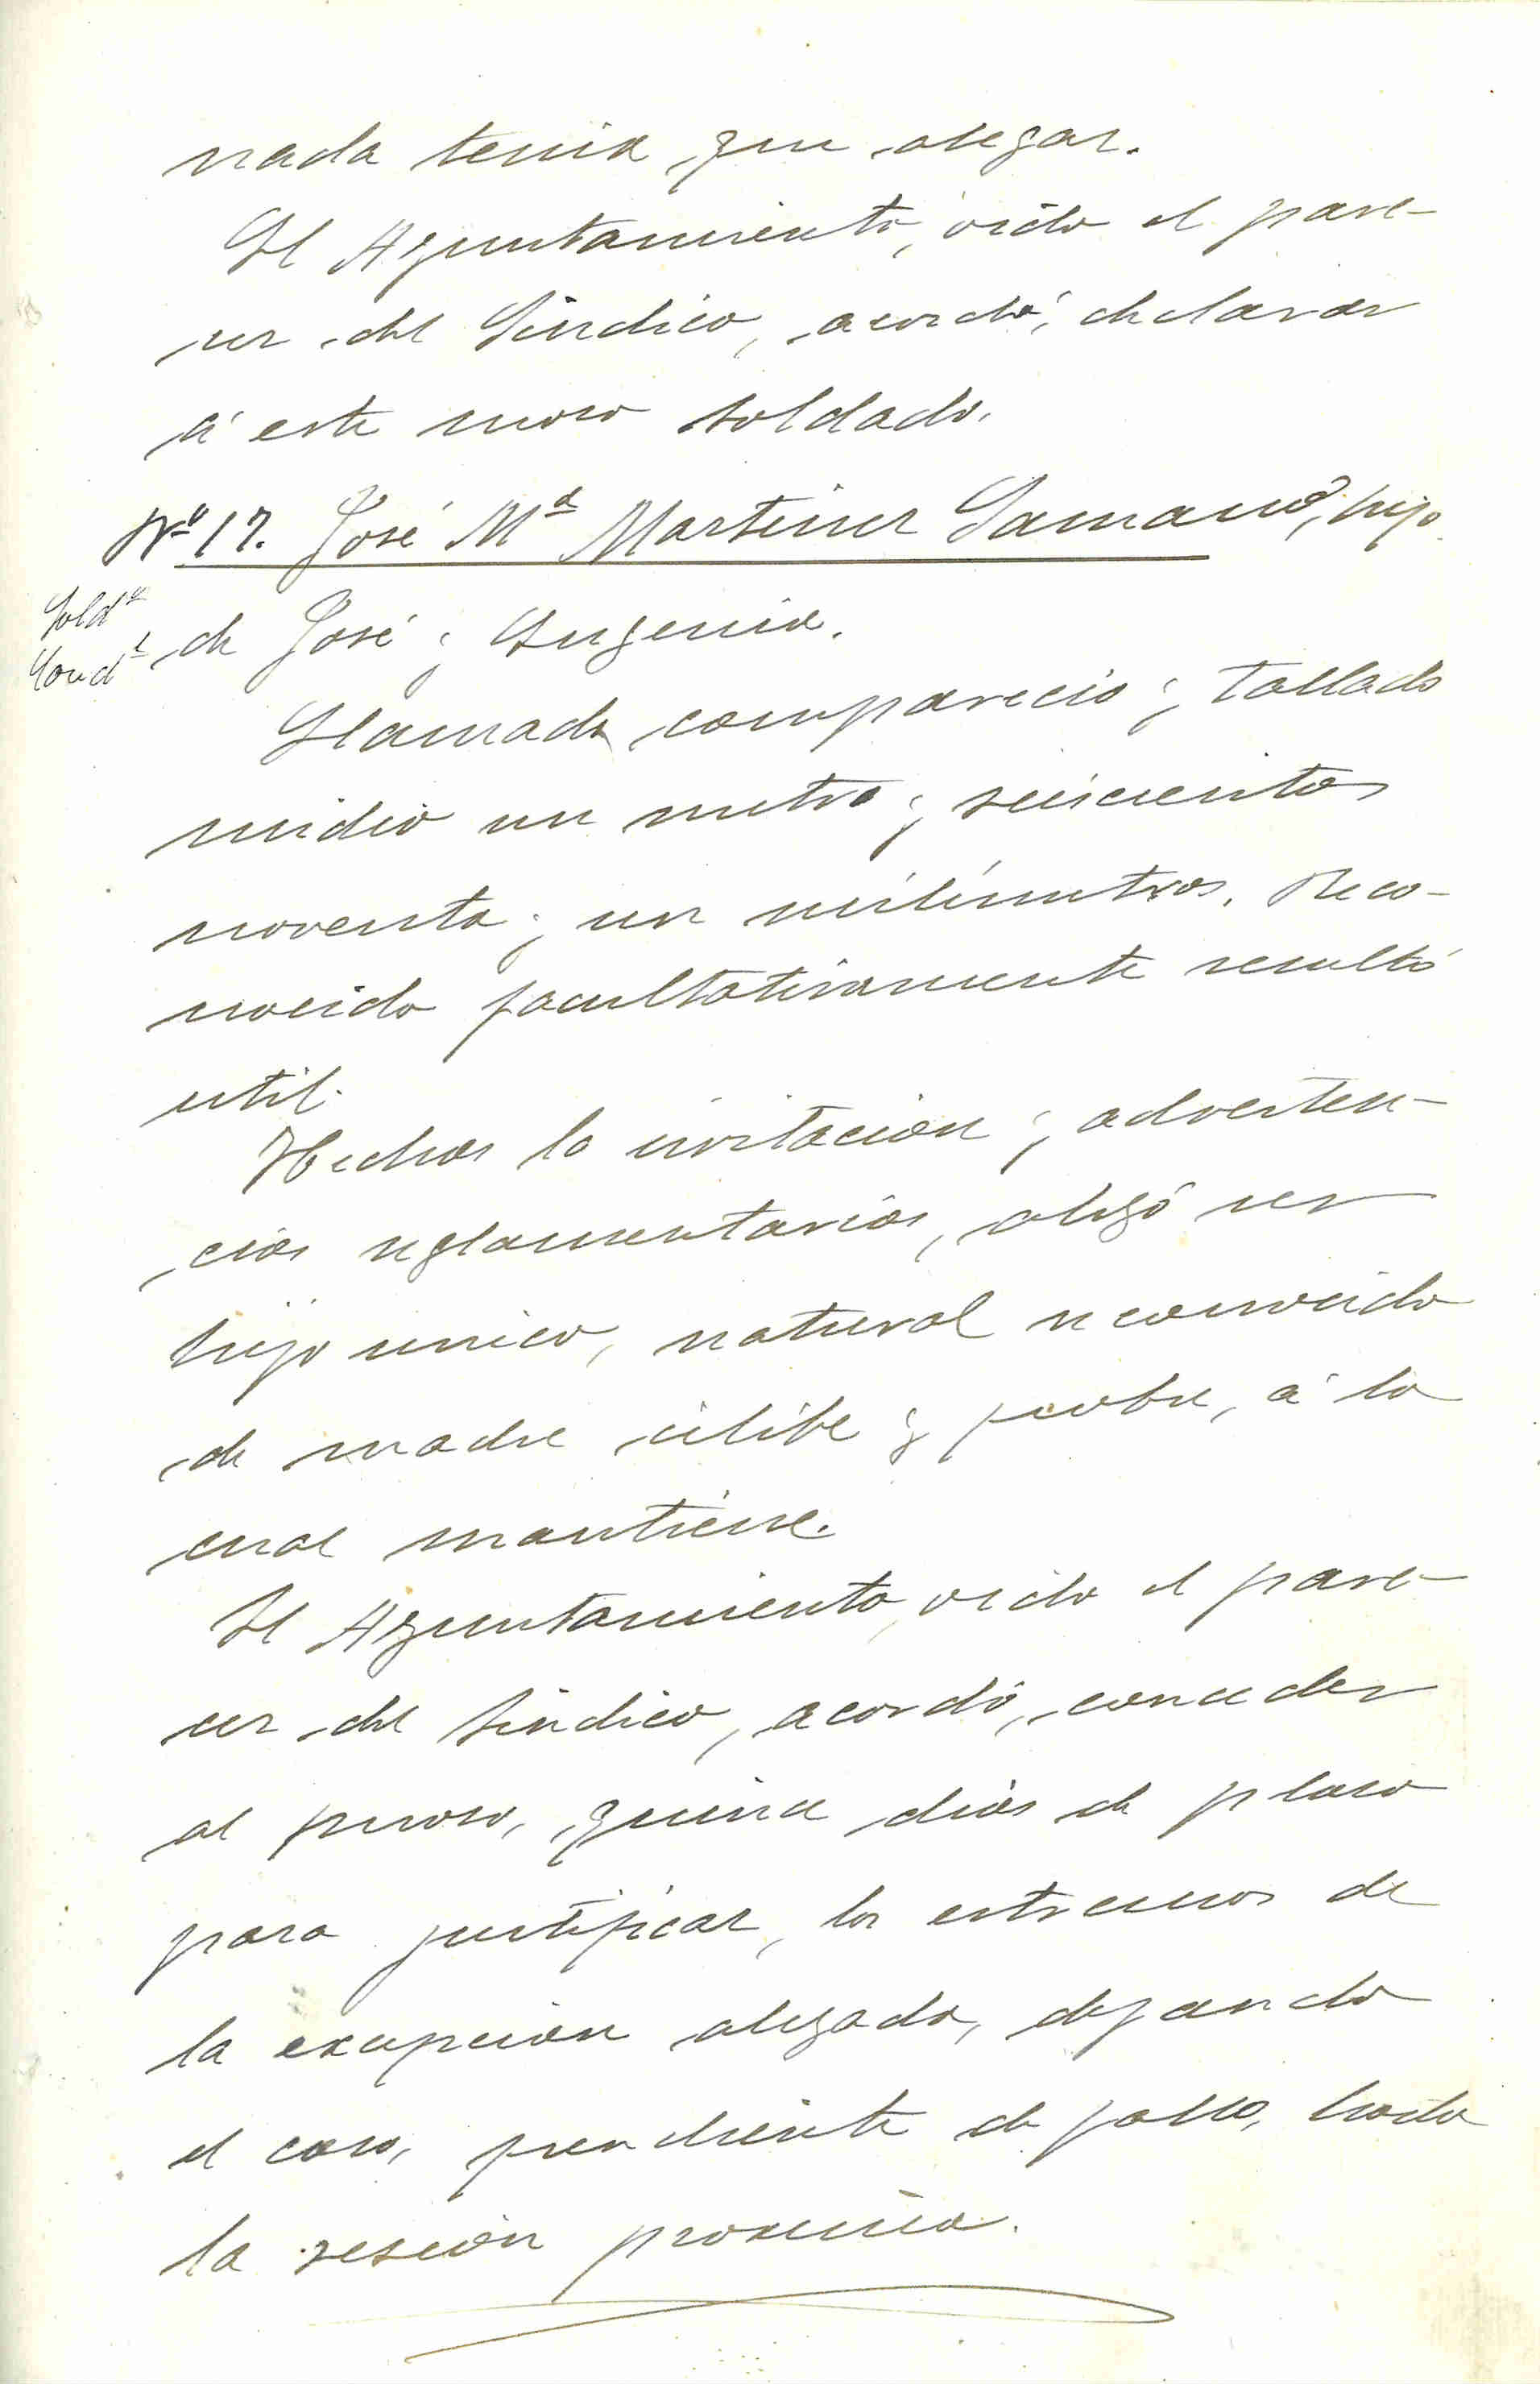 nada tenia que alegar.
El Ayuntamiento, oido el pare-
cer del Síndico, acordó, declarar
á este mozo soldado.
Nº 17. José Mª Martinez Samano, hijo
Soldº
Condl
de José y Eugenia.
Llamado compareció y tallado
midió un metro y seiscientos
noventa y un milímetros. Reco-
nocido facultativamente resultó
util.
Hechas la invitacion y adverten-
cias reglamentarias, alegó ser
hijo unico, natural reconocido
de madre célibe y pobre, á la
cual mantiene.
El Ayuntamiento, oido el pare-
cer del Síndico, acordó, conceder
al mozo, quince dias de plazo
para justificar, los estremos de
la excepcion alegada, dejando
el caso, pendiente de fallo, hasta
la sesión proxima.